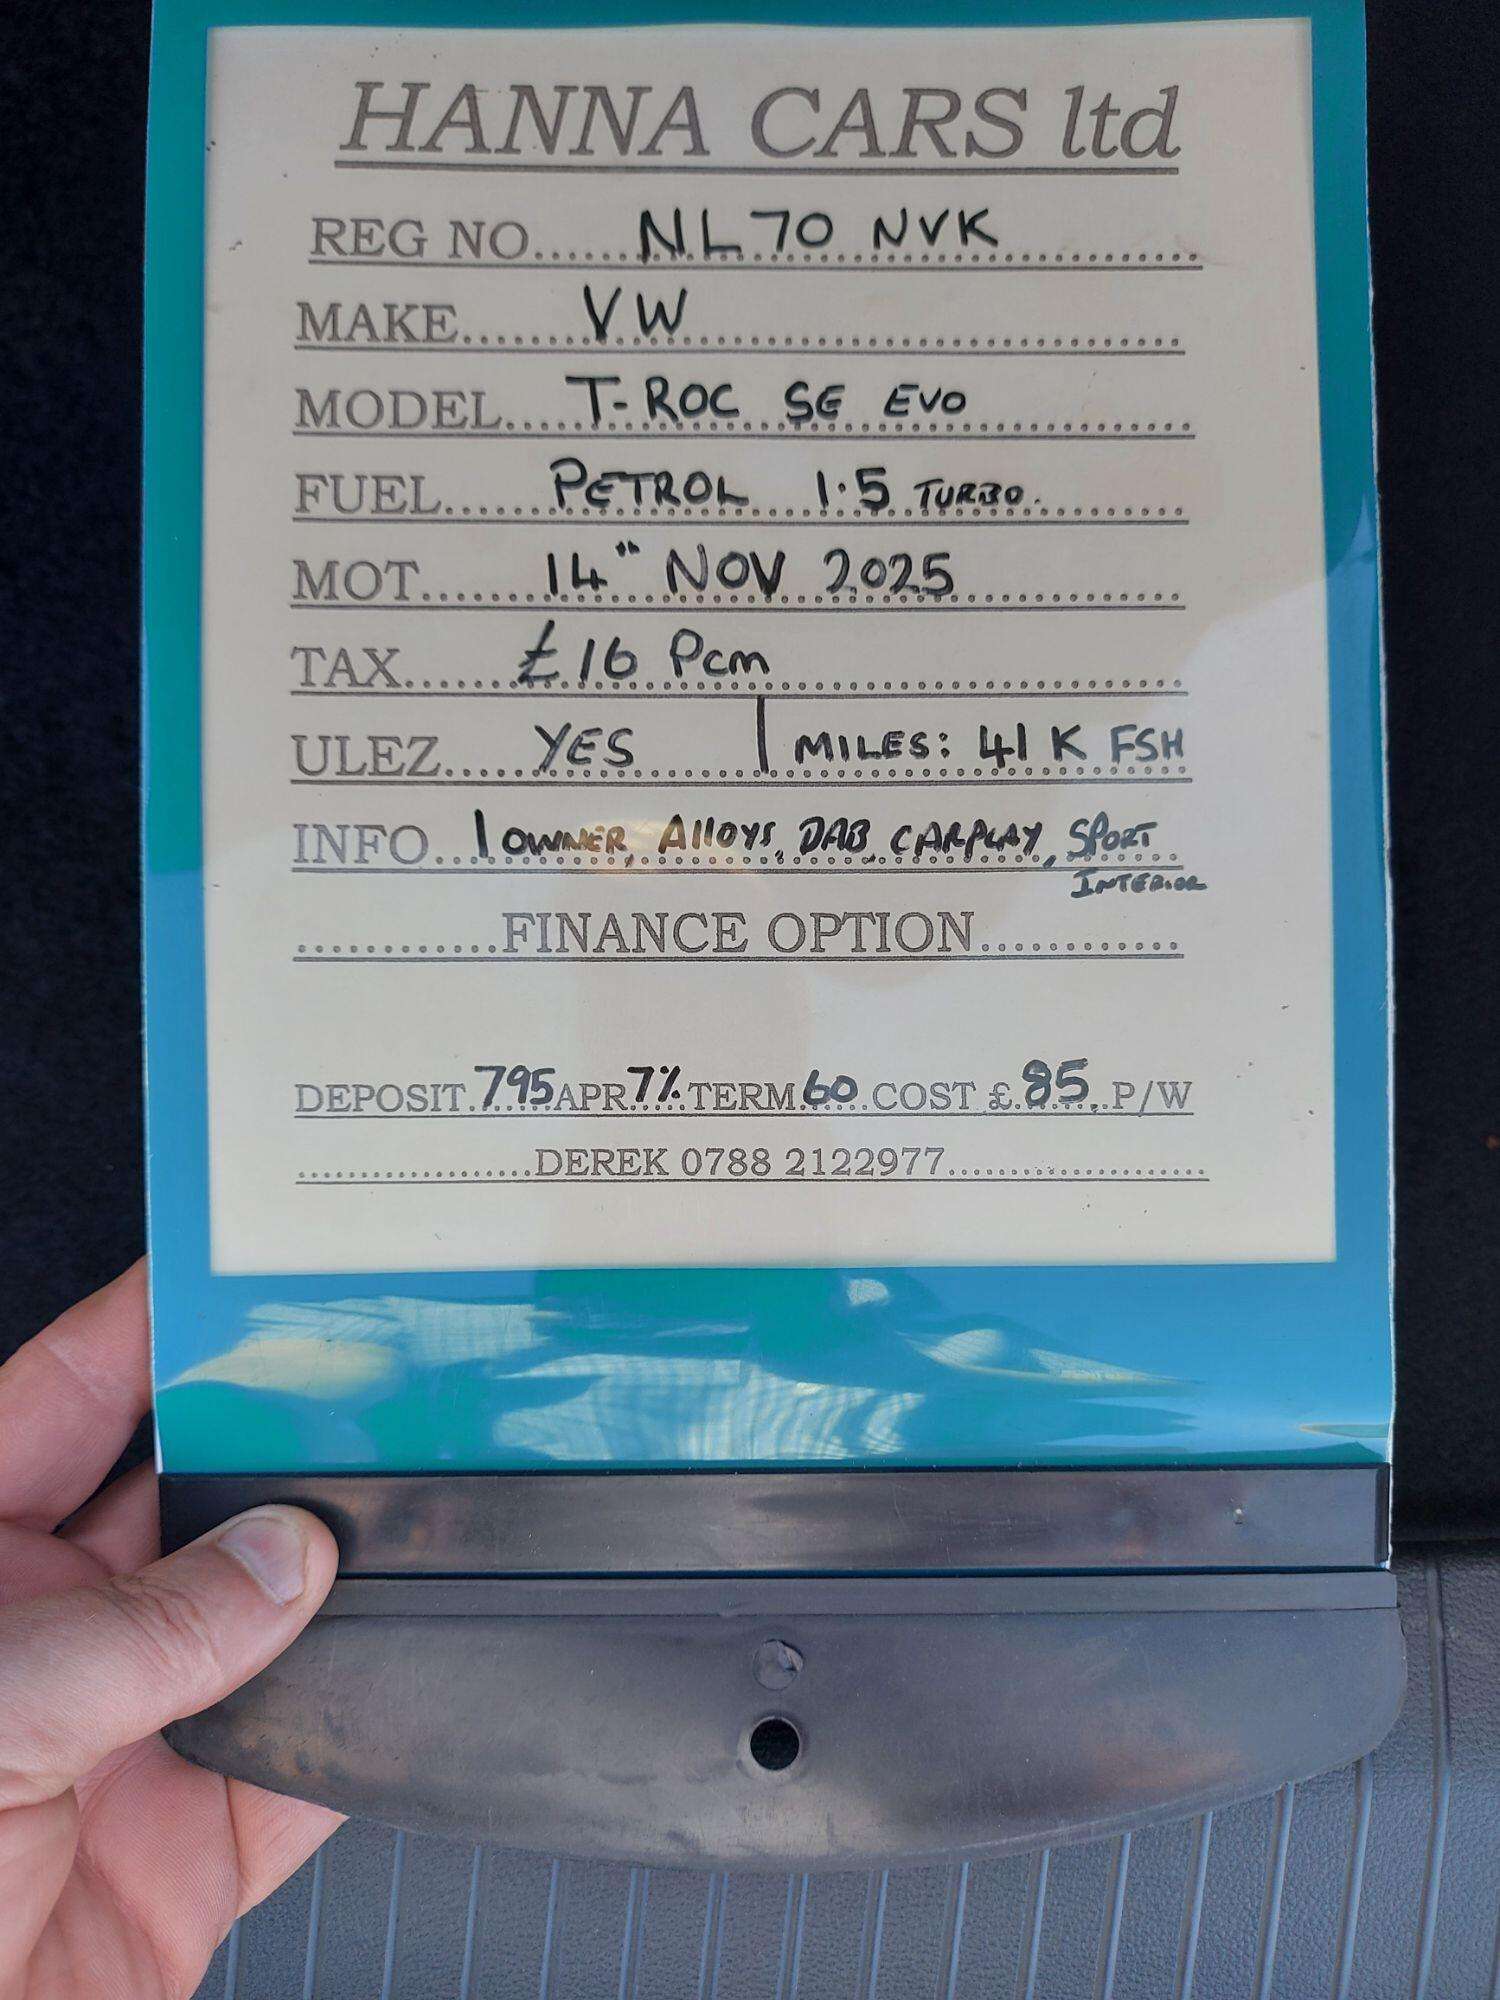 HANNA CARS ltd
REG NO......NL70 NVK..............
MAKE......VW..............
MODEL....T-ROC SE EVO..............
FUEL......PETROL 1.5 TURBO...........
MOT......14th NOV 2025..............
TAX......£16 Pcm..............
ULEZ....YES | MILES: 41K FSH
INFO...1 OWNER, Alloys, DAB, CARPLAY, SPORT
INTERIOR
............FINANCE OPTION............
DEPOSIT.795 APR 7% TERM 60 COST £.85..P/W
..................DEREK 0788 2122977....................